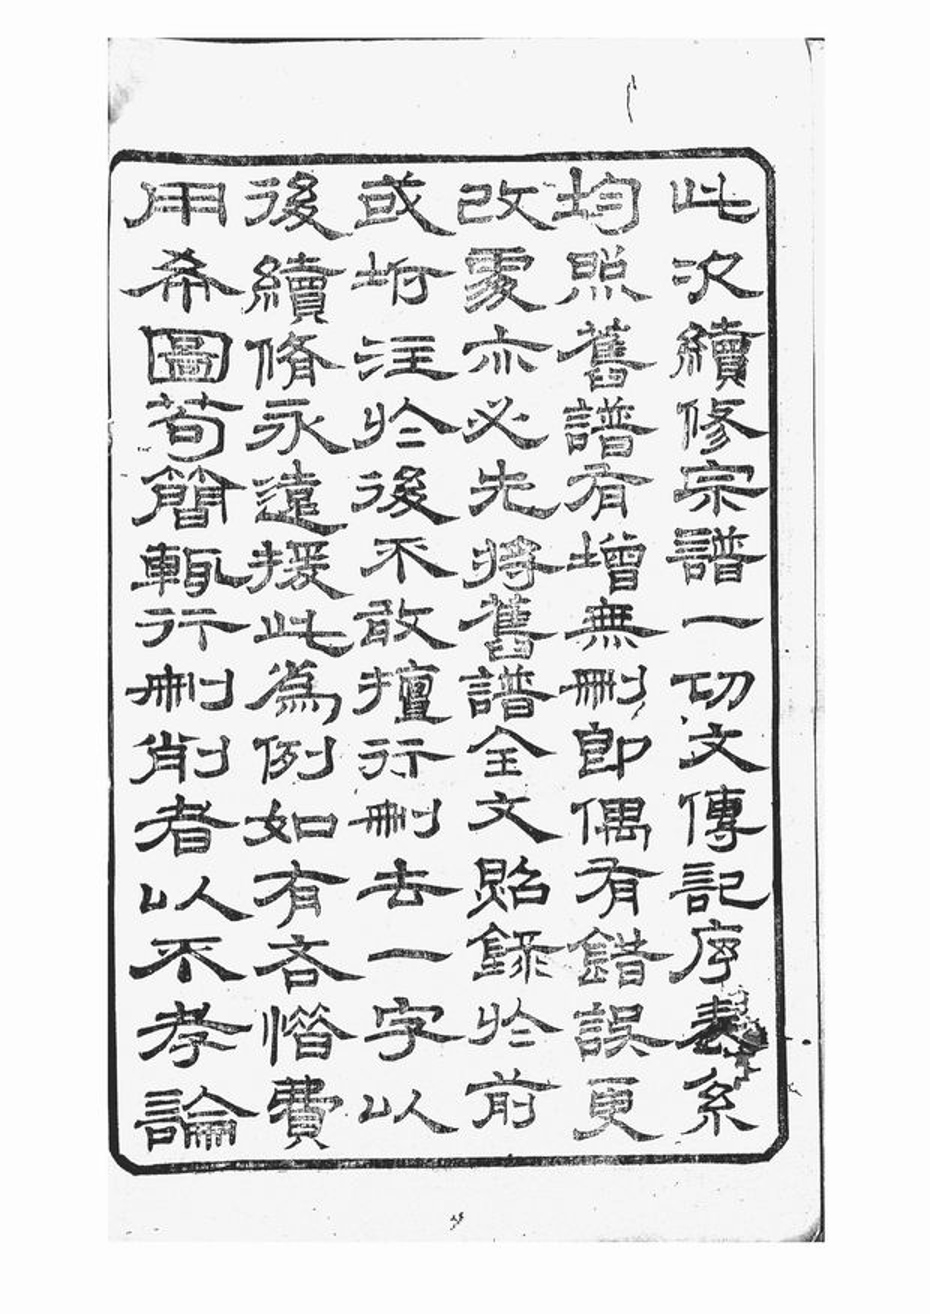 此次續修宗譜一切文傳記序表系
均照舊譜有增無刪即偶有錯誤更
改處亦必先將舊譜全文照錄於前
或坿注於後不敢擅行刪去一字以
後續脩永遠援此為例如有吝惜費
用希圖苟簡輒行刪削者以不孝論